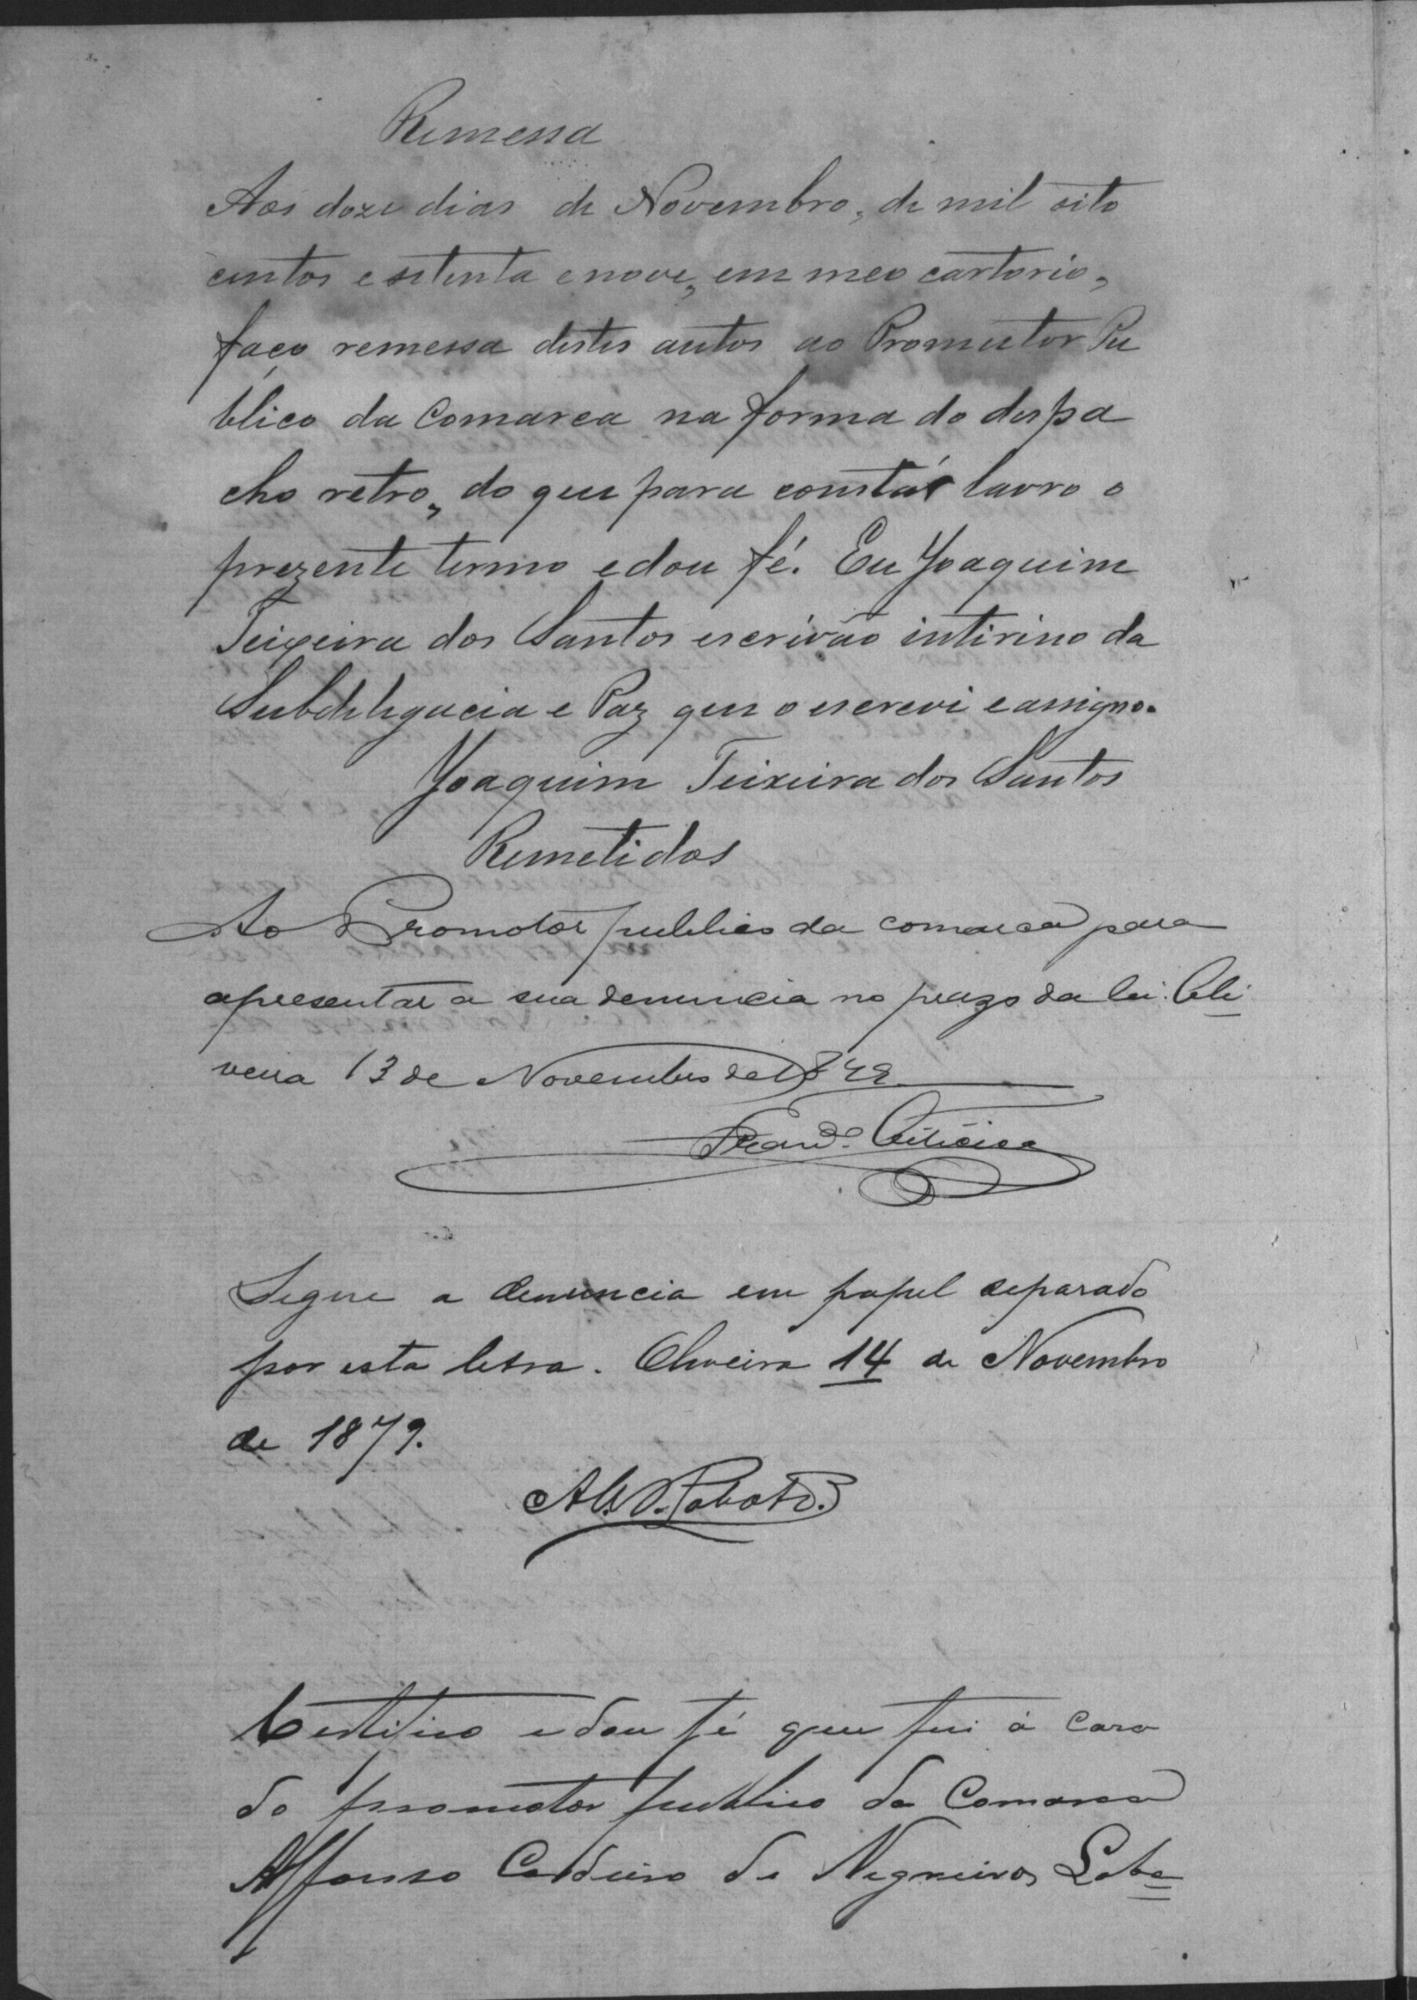 Remessa
Aos doze dias de Novembro, de mil oito
centos e setenta e nove, em meo cartorio,
faço remessa destes autos ao Promutor Pu
blico da Comarca na forma do despa
cho retro, do que para constár lavro o
prezente termo e dou fé. Eu Joaquim
Teixeira dos Santos escrivão intirino da
Subdelegacia e Paz que o escrevi e assigno.
Joaquim Teixeira dos Santos
Remetidos
Ao Promotor publico da comarca para
apresentar a sua denuncia no prazo da lei. Oli
veira 13 de Novembro de 1879
Segue a denuncia em papel separado
por esta letra. Oliveira 14 de Novembro
de 1879.
Certifico e dou fé que fui á casa
do promotor publico da Comarca
Affonso Cordeiro de Negreiros Loba